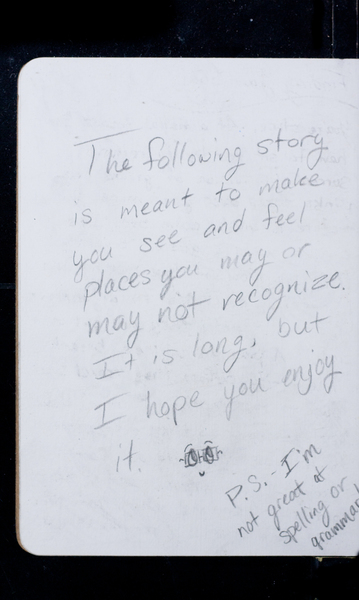 The following story
is meant to make
you see and feel
places you may or
may not recognize.
It is long, but
I hope you enjoy
it.
P.S. - I'm
not great at
spelling or
grammar